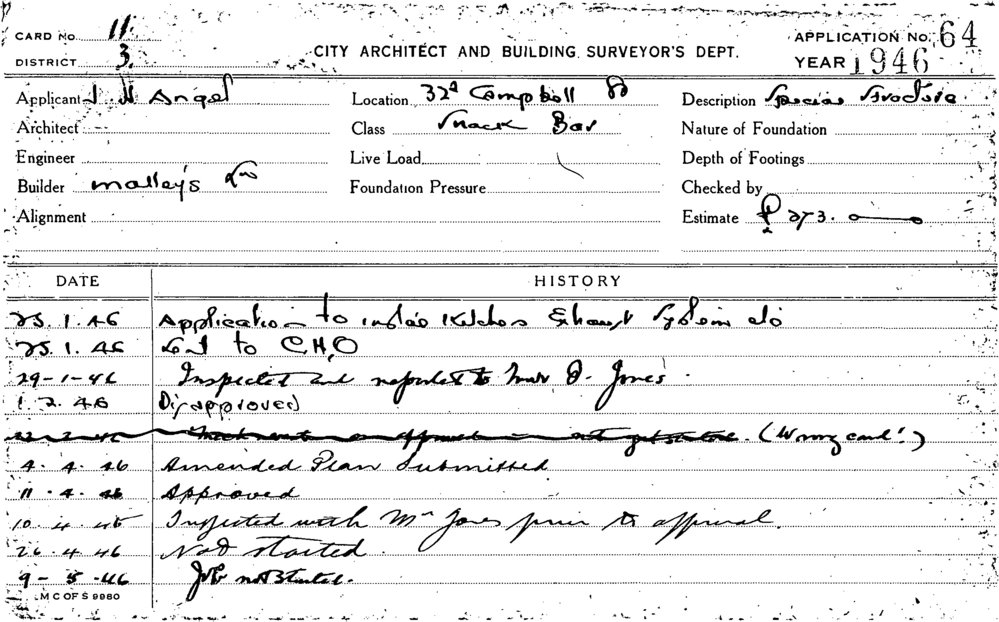 CARD No. 11.
DISTRICT 3.
CITY ARCHITECT AND BUILDING SURVEYOR'S DEPT.
APPLICATION No. 64
YEAR 1946
Applicant J H Angel
Location 32A Campbell
Description Special
Architect
Class Snack Bar
Nature of Foundation
Engineer
Live Load
Depth of Footings
Builder Malley's Ltd
Foundation Pressure
Checked by
Alignment
Estimate £ 273.
DATE HISTORY
25.1.46 Application to install Kitchen Exhaust System
25.1.46 Sent to C.H.O
29-1-46 Inspected and reported to Mr O. Jones.
1.2.46 Disapproved
(Wrong card!)
4.4.46 Amended Plan Submitted
11.4.46 Approved
10.4.46 Inspected with Mr Jones prior to approval.
26.4.46 Not started.
9-5-46 Job not Started.
M C OF S 9980